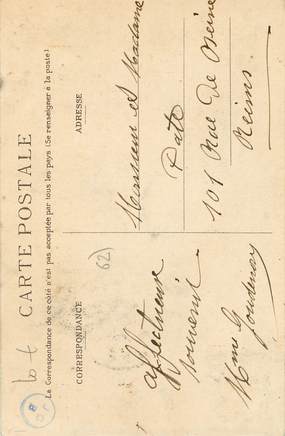 CARTE POSTALE
La Correspondance de ce côté n'est pas acceptée par tous les pays (Se renseigner à la poste)
CORRESPONDANCE
ADRESSE
62
affectueux
souvenir
Mme
Monsieur et Madame
Pate
101 Rue De
Reims